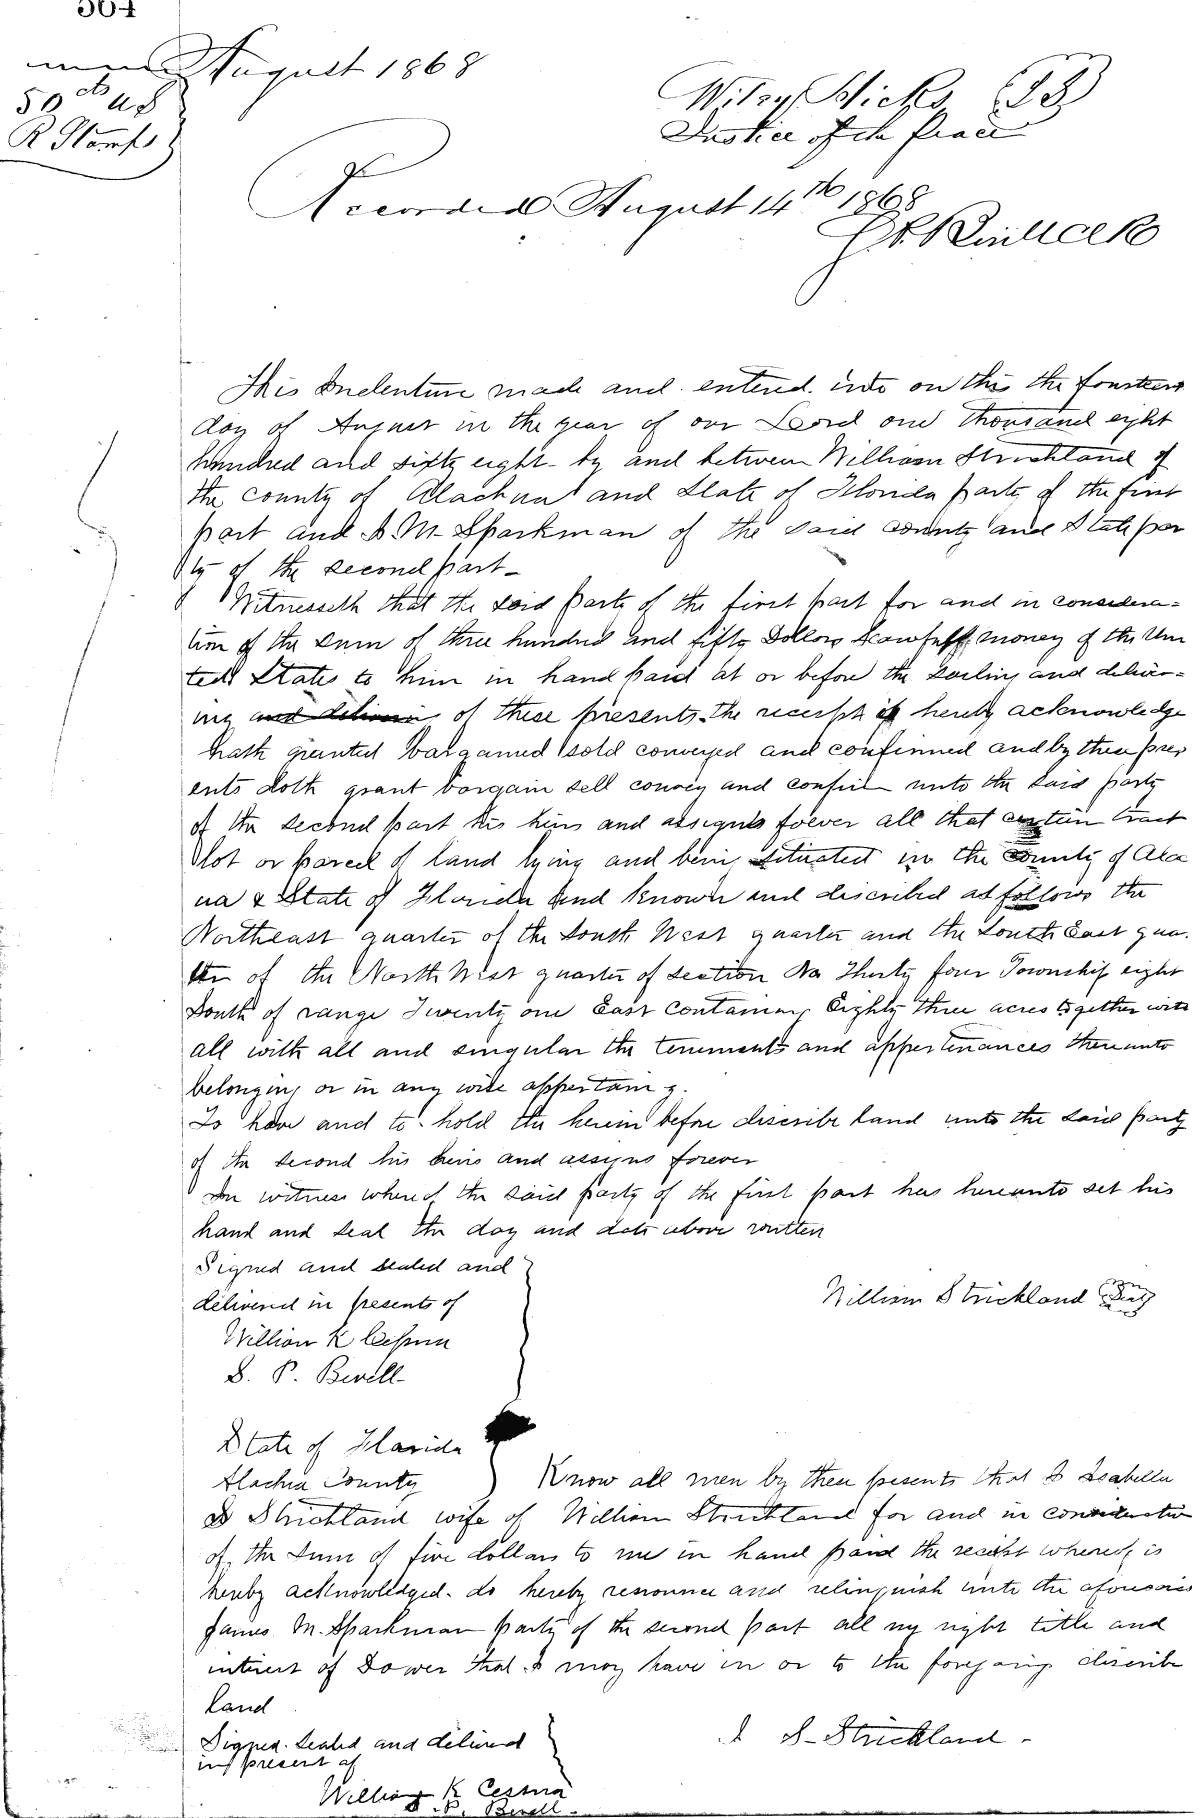 564
August 1868
50 cts U S
R Stamps
Wiley Hicks
Justice of the Peace
Recorded August 14th 1868
This Indenture made and entered into on this the fourteen
day of August in the year of our Lord one thousand eight
hundred and sixty eight by and between William Strickland of
the county of Alachua and State of Florida party of the first
part and J. M. Sparkman of the said county and State par
ty of the second part-
Witnesseth that the said party of the first part for and in considera-
tion of the sum of three hundred and fifty Dollars Lawfull money of the Uni
ted States to him in hand paid at or before the sealing and deliver-
ing and delivering of these presents the receipt is hereby acknowledge
hath granted bargained sold conveyed and confirmed and by these pres
ents doth grant bargain sell convey and confirm unto the said party
of the second part his heirs and assigns foever all that certain tract
lot or parcel of land lying and being situated in the county of Ala
ua & State of Florida and known and discribed as follows the
Northeast quarter of the South West quarter and the South East qua
ter of the North West quarter of section No Thirty four Township eight
South of range Twenty one East containing Eighty three acres together with
all with all and singular the tenements and appertinances thereunto
belonging or in any wise appertaing.
To have and to hold the herein before discribe land unto the said party
of the second his heirs and assigns forever
In witness whereof the said party of the first part has hereunto set his
hand and seal the day and date above written
Signed and sealed and
delivered in presents of
William Strickland Seal
William K Cessna
S. P. Bevell
State of Florida
Alachua County
Know all men by these presents that I Isabella
S Strickland wife of William Strickland for and in consideration
of the sum of five dollars to me in hand paid the receipt whereof is
hereby acknowledged do hereby renounce and relinquish unto the aforesaid
James M. Sparkman party of the second part all my right title and
interest of Dower that I may have in or to the foregoing discribe
land
Signed sealed and delivered
in present of
I S- Strickland -
William K Cessna
S. P. Bevell-